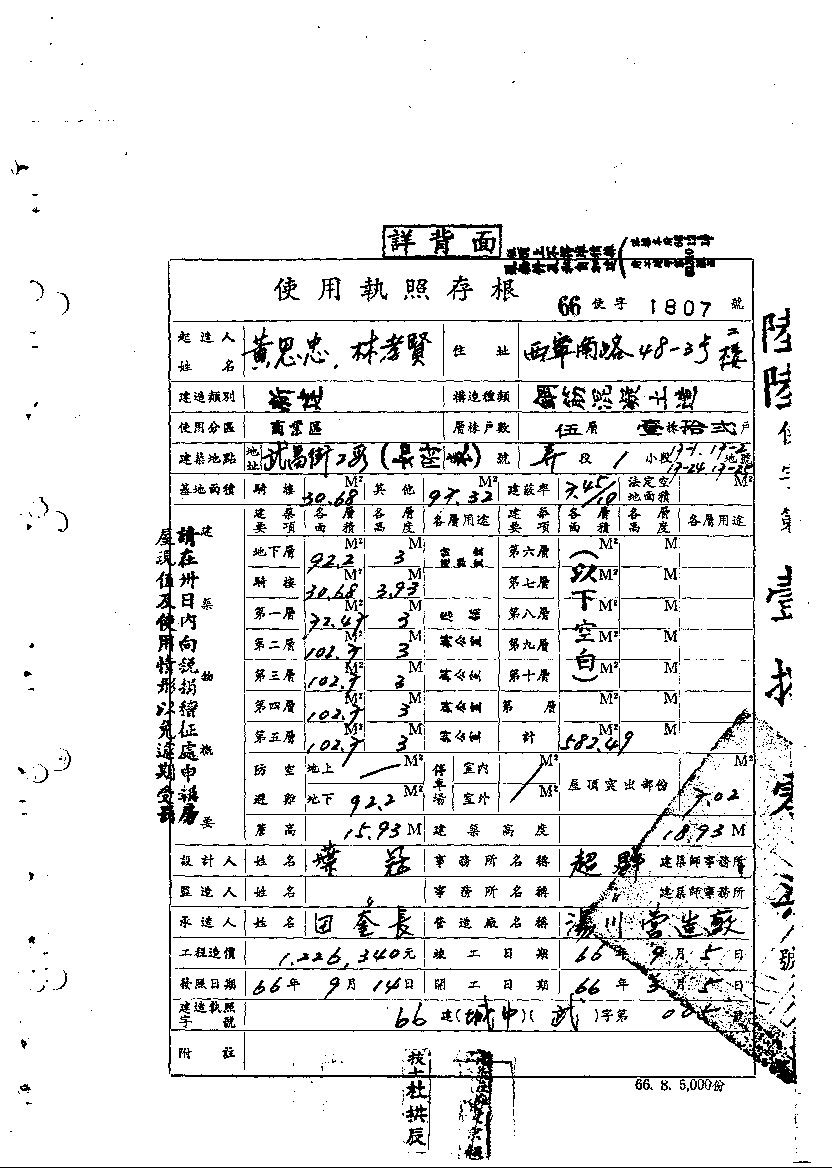 詳背面
使用執照存根
66 使字 1807 號
起造人姓名 黃思忠、林孝賢 住址 西寧南路48-3号二樓
建造類別 構造種類
使用分區 商業區 層棟戶數 伍層 壹棟拾弍戶
建築地點 地址 武昌街2段 號 段 1 小段 地號
基地面積 騎樓 30.68 M² 其他 97.32 M² 建蔽率 7.45/10 法定空地面積 M²
建築要項 各層面積 各層高度 各層用途 建築要項 各層面積 各層高度 各層用途
地下層 92.2 M² 3 M 第六層 M² M
騎樓 30.68 M² 3.93 M 第七層 M² M
第一層 72.47 M² 3 M 第八層 M² M
第二層 102.7 M² 3 M 第九層 M² M
第三層 102.7 M² 3 M 第十層 M² M
第四層 102.7 M² 3 M 第 層 M² M
第五層 102.7 M² 3 M 計 582.49 M² M
(以下空白)
防空避難 地上 M² 停車場 室內 M² 屋頂突出部份 7.02 M²
地下 92.2 M² 室外 M²
簷高 15.93 M 建築高度 18.93 M
設計人 姓名 葉冠 事務所名稱 超群 建築師事務所
監造人 姓名 事務所名稱 建築師事務所
承造人 姓名 田奎長 營造廠名稱 湯川營造廠
工程造價 1,226,340元 竣工日期 66年9月5日
發照日期 66年9月14日 開工日期 66年3月5日
建造執照字號 66 建(城中)(武)字第 005 號
附註
建築物概要
請在卅日內向稅捐稽征處申請房
屋現值及使用情形以免逾期受罰
66. 8. 5,000份
技士杜拱辰
陸陸使字第壹
號